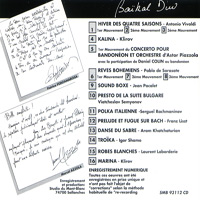 Baikal Duo
1 HIVER DES QUATRE SAISONS - Antonio Vivaldi
1er Mouvement 2 2ème Mouvement 3 3ème Mouvement
4 KALINA - Klirov
5 1er Mouvement du CONCERTO POUR
BANDONÉON ET ORCHESTRE d'Astor Piazzola
avec la participation de Daniel COLIN au bandonéon
6 REVES BOHEMIENS - Pablo de Sarasate
1er Mouvement 7 2ème Mouvement 8 3ème Mouvement
9 SOUND BOX - Jean Pacalet
10 PRESTO DE LA SUITE BULGARE
Viatcheslav Semyonov
11 POLKA ITALIENNE - Serguei Rachmaninov
12 PRELUDE ET FUGUE SUR BACH - Franz Liszt
13 DANSE DU SABRE - Aram Khatchaturian
14 TROÏKA - Igor Shamo
15 ROBES BLANCHES - Laurent Labarderie
16 MARINA - Klirov
ENREGISTREMENT NUMERIQUE
Toutes ces oeuvres ont été
enregistrées en prise unique et
n'ont pas fait l'objet de
"corrections" selon la méthode
habituelle de "re-recording
Enregistrement
et production:
Studio du Mont-Blanc
74700 Sallanches
SMB 93112 CD